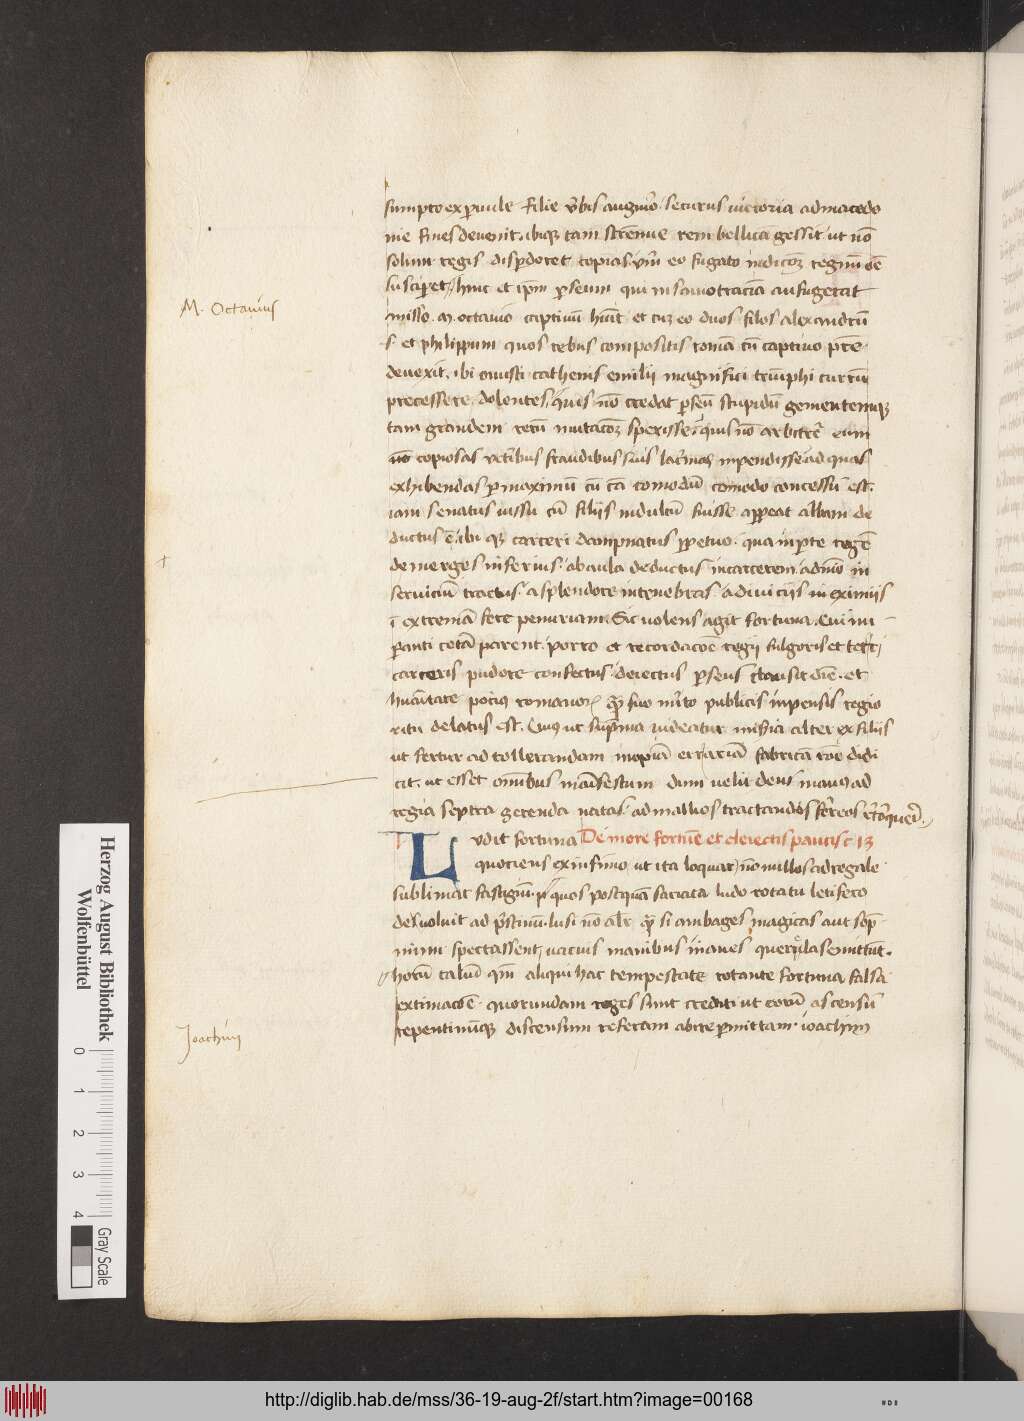 sumpto ex puule filie ūbis augurio securus victoria ad macedo
nie fines devenit. ibiqꝫ tam strenue rem bellicā gessit ut nō
solum regis disperderet copias. verū eo fugato in dicōꝫ regnū oē
susciperet. hinc et ipm perseum qui in samotraciā aufugerat
M. Octavius
misso .m. octavio captivū hūit et cuꝫ eo duos filios alexandrū
.s. et philippum quos rebus compositis romā cū captivo pre
devexit. ibi onusti cathenis emilii magnifici triūphi currū
precessere dolentes. quis nō credat perseū stupidū gementemqꝫ
tam grandem rerū mutacōꝫ spexisse. quis nō arbitret eum
nō copiosas veteribus fraudibus suis lacrimas inpendisse. ad quas
exhibendas per maximū cū ēa comodū comodo concessū est.
iam senatus iussu cū filiis indultū fuisse appeat albam de
ductus ē. ibiqꝫ carceri dampnatus ppetuo. qua in pte regē
demerges inferius. ab aula deductus in carcerem. ab imō in
serviciū tractus. a splendore in tenebras. a diviciis in eximiis
ī extremā fere penuriam. Sic volens agit fortuna. Cui im
peranti cetā parent. porro et recordacōe regii fulgoris et tetri
carceris pudore confectus deiectus perseus clausit diē. et
huāitate pocius romanorꝫ quā suo mito publicis inpensis regio
ritu delatus est. Cuius ut suprema videatur miseria alter ex filiis
ut fertur ad tollerandam inopiā errariā fabricā rōe didi
cit. ut esset omībus māifestum dum velit deus manus ad
regia septra gerenda natas. ad malleos tractandos ferreos
LVdit fortuna De more fortūe et deiectis paucis c 13
quotiens ex infimo ut ita loquar nōnullos ad regale
sublimat fastigiū. quos postquā saciata ludo rotatu letifero
devoluit ad pristinū. lusi nō alr quā si ambages magicas aut sop
nium spectassent vacuis manibus inanes querulas emittūt.
horū taliū quī aliqui hac tempestate rotante fortuna falsa
extimacōe quorundam reges sunt crediti ut eorū ascensū
Joachim
repentinūqꝫ discensum referam abire permittam. ioachim
Herzog August Bibliothek
Wolfenbüttel
0 1 2 3 4
Gray Scale
http://diglib.hab.de/mss/36-19-aug-2f/start.htm?image=00168